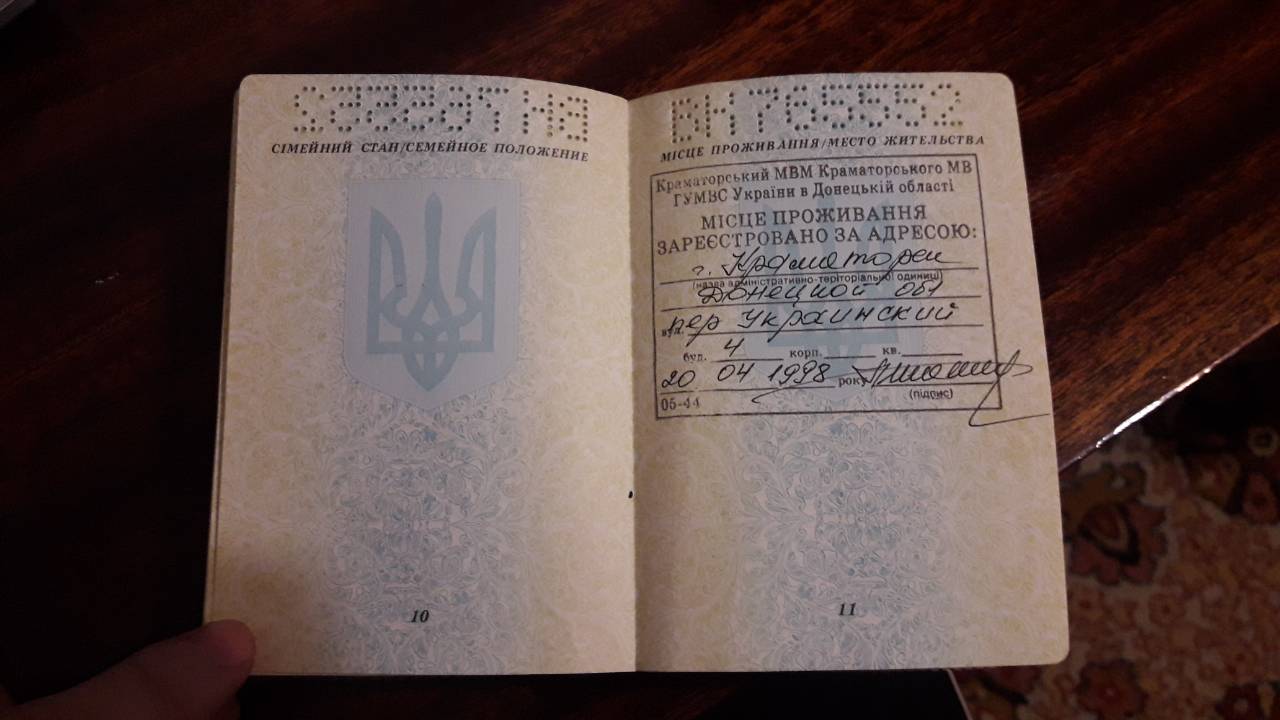 СІМЕЙНИЙ СТАН/СЕМЕЙНОЕ ПОЛОЖЕНИЕ
10
ВН 785552
МІСЦЕ ПРОЖИВАННЯ/МЕСТО ЖИТЕЛЬСТВА
Краматорський МВМ Краматорського МВ
ГУМВС України в Донецькій області
МІСЦЕ ПРОЖИВАННЯ
ЗАРЕЄСТРОВАНО ЗА АДРЕСОЮ:
г. Краматорск
(назва адміністративно-територіальної одиниці)
Донецкой обл
вул. пер Украинский
буд. 4 корп. кв.
20 04 1998 року
(підпис)
05-44
11